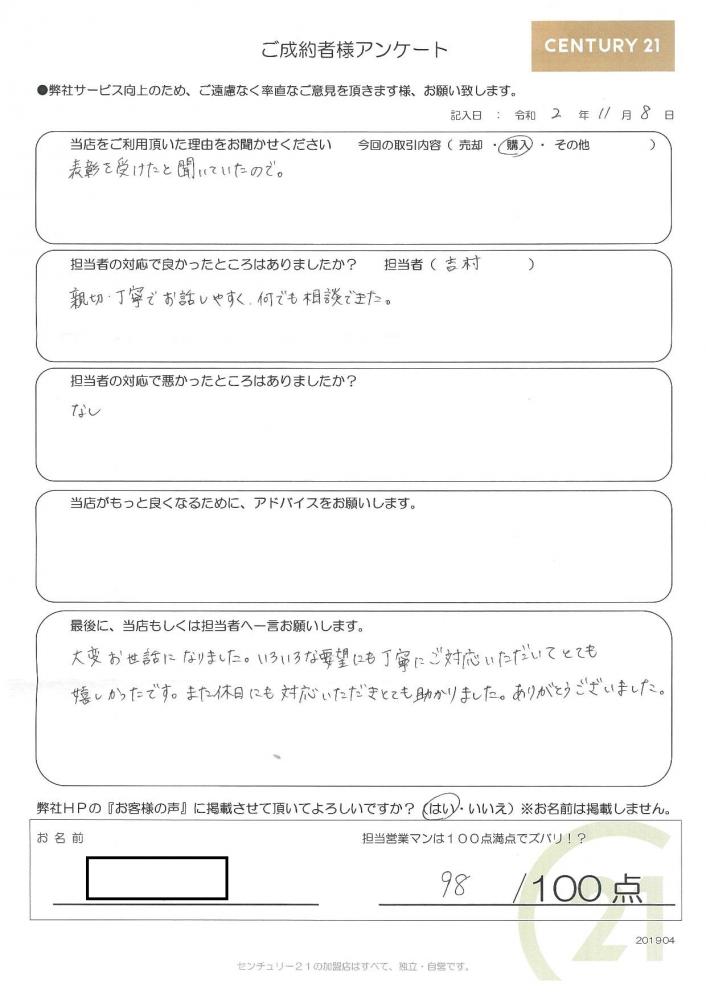 ご成約者様アンケート
CENTURY 21
●弊社サービス向上のため、ご遠慮なく率直なご意見を頂きます様、お願い致します。
記入日 : 令和 2 年 11 月 8 日
当店をご利用頂いた理由をお聞かせください 今回の取引内容 ( 売却 ・ 購入 ・ その他 )
表彰を受けたと聞いていたので。
担当者の対応で良かったところはありましたか? 担当者 ( 吉村 )
親切・丁寧でお話しやすく、何でも相談できた。
担当者の対応で悪かったところはありましたか?
なし
当店がもっと良くなるために、アドバイスをお願いします。
最後に、当店もしくは担当者へ一言お願いします。
大変お世話になりました。いろいろな要望にも丁寧にご対応いただいてとても
嬉しかったです。また休日にも対応いただきとても助かりました。ありがとうございました。
弊社HPの『お客様の声』に掲載させて頂いてよろしいですか? (はい・いいえ) ※お名前は掲載しません。
お 名 前
担当営業マンは100点満点でズバリ!?
98 /100 点
21
201904
センチュリー21の加盟店はすべて、独立・自営です。